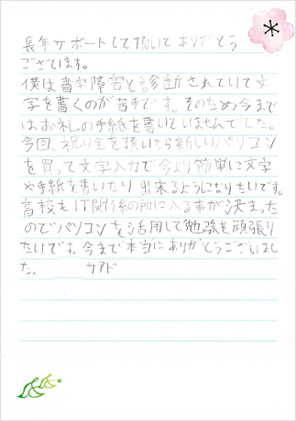 長年サポートして頂いてありがとう
ございます。
僕は書字障害と診断されていて文
字を書くのが苦手です。そのため今まで
はお礼の手紙を書いていませんでした。
今回、祝い金を頂いたら新しいパソコン
を買って文字入力で今より簡単に文字
や手紙を書いたり出来るようになりたいです。
高校もIT関係の所に入る事が決まった
のでパソコンを活用して勉強も頑張り
たいです。今まで本当にありがとうございまし
た。 サアド